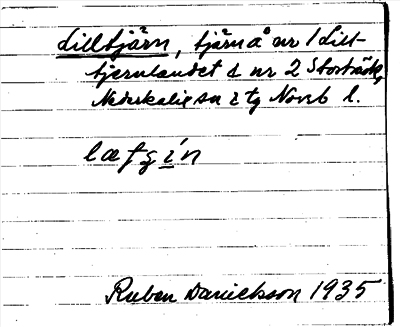 Lilltjärn, tjärn å nr 1 Lill-
tjernlandet & nr 2 Storträsk,
Nederkalix sn i tg Norrb l.
lætʒín
Ruben Danielsson 1935